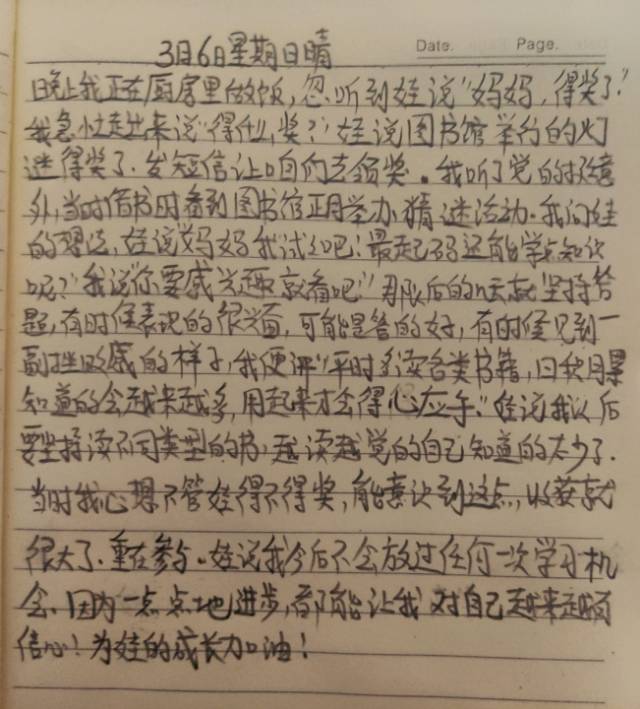 Date. Page.
3月6日星期日晴
晚上我正在厨房里做饭,忽听到娃说"妈妈,得奖了"
我急忙走出来说"得什么奖?"娃说图书馆举行的灯
迷得奖了.发短信让咱们去领奖。我听了觉的挺意
外,当时借书时看到图书馆正月举办猜迷活动.我问娃
的想法,娃说"妈妈我试试吧!最起码还能学点知识
呢?"我说"你要感兴趣就看吧"那以后的几天就坚持答
题,有时候表现的很兴奋,可能是答的好,有时候见到一
副挫败感的样子,我便讲"平时多读各类书籍,日积月累
知道的会越来越多,用起来才会得心应手."娃说我以后
要坚持读不同类型的书,越读越觉的自己知道的太少了.
当时我心想不管娃得不得奖,能意识到这点,收获就
很大了.重在参与.娃说我今后不会放过任何一次学习机
会.因为一点点地进步,都能让我对自己越来越有
信心!为娃的成长加油!